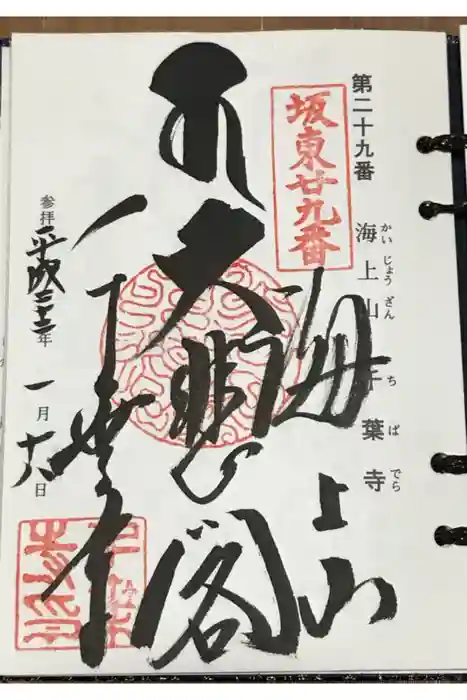 第二十九番
海上山 千葉寺
かいじょうざん ちばでら
坂東廿九番
海上山
大悲閣
千葉寺
参拝 平成二十三年 一月 十六日